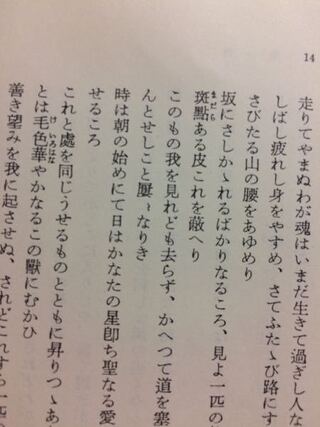 14
走りてやまぬわが魂はいまだ生きて過ぎし人な
しばし疲れし身をやすめ、さてふたゝび路にす
さびたる山の腰をあゆめり
坂にさしかゝれるばかりなるころ、見よ一匹の
斑點ある皮これを蔽へり
まだら
このもの我を見れども去らず、かへつて道を塞
んとせしこと屢〻なりき
時は朝の始めにて日はかなたの星卽ち聖なる愛
せるころ
これと處を同じうせるものとともに昇りつゝあ
とは毛色華やかなるこの獸にむかひ
けいろはな
善き望みを我に起させぬ、されどこれすら一匹